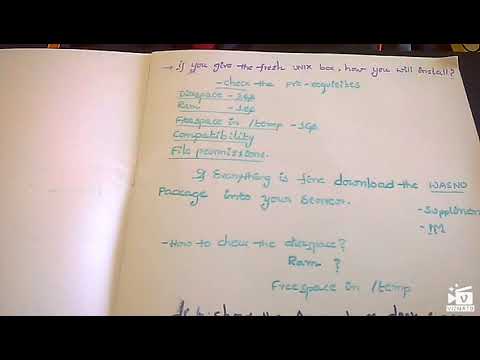 → If you give the fresh UNIX box, how you will install?
- check the pre-requisites
Diskspace - 3GB
Ram - 1GB
Freespace in /temp - 1GB
Compatibility
File permissions.
If Everything is fine download the WASND
Package into your server.
- Supplimen
- How to check the diskspace?
Ram ?
Freespace in /temp
VIVAVIDEO